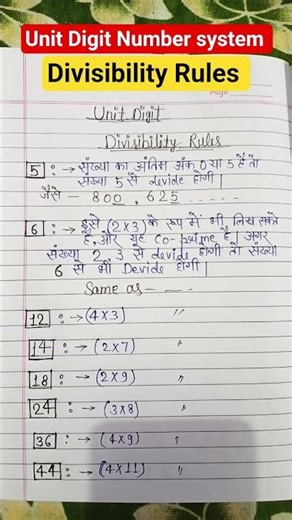 Unit Digit Number system
Divisibility Rules
Page
Unit Digit
Divisibility Rules
5 : → संख्या का अंतिम अंक 0 या 5 है तो
संख्या 5 से devide होगी |
जैसे - 800, 625 .......
6 : → इसे (2x3) के रूप में भी लिख सकते
है, और यह Co-prime है | अगर
संख्या 2, 3 से devide होगी तो संख्या
6 से भी Devide होगी |
Same as —
12 : → (4x3) "
14 : → (2x7) "
18 : → (2x9) "
24 : → (3x8) "
36 : → (4x9) "
44 : → (4x11) "